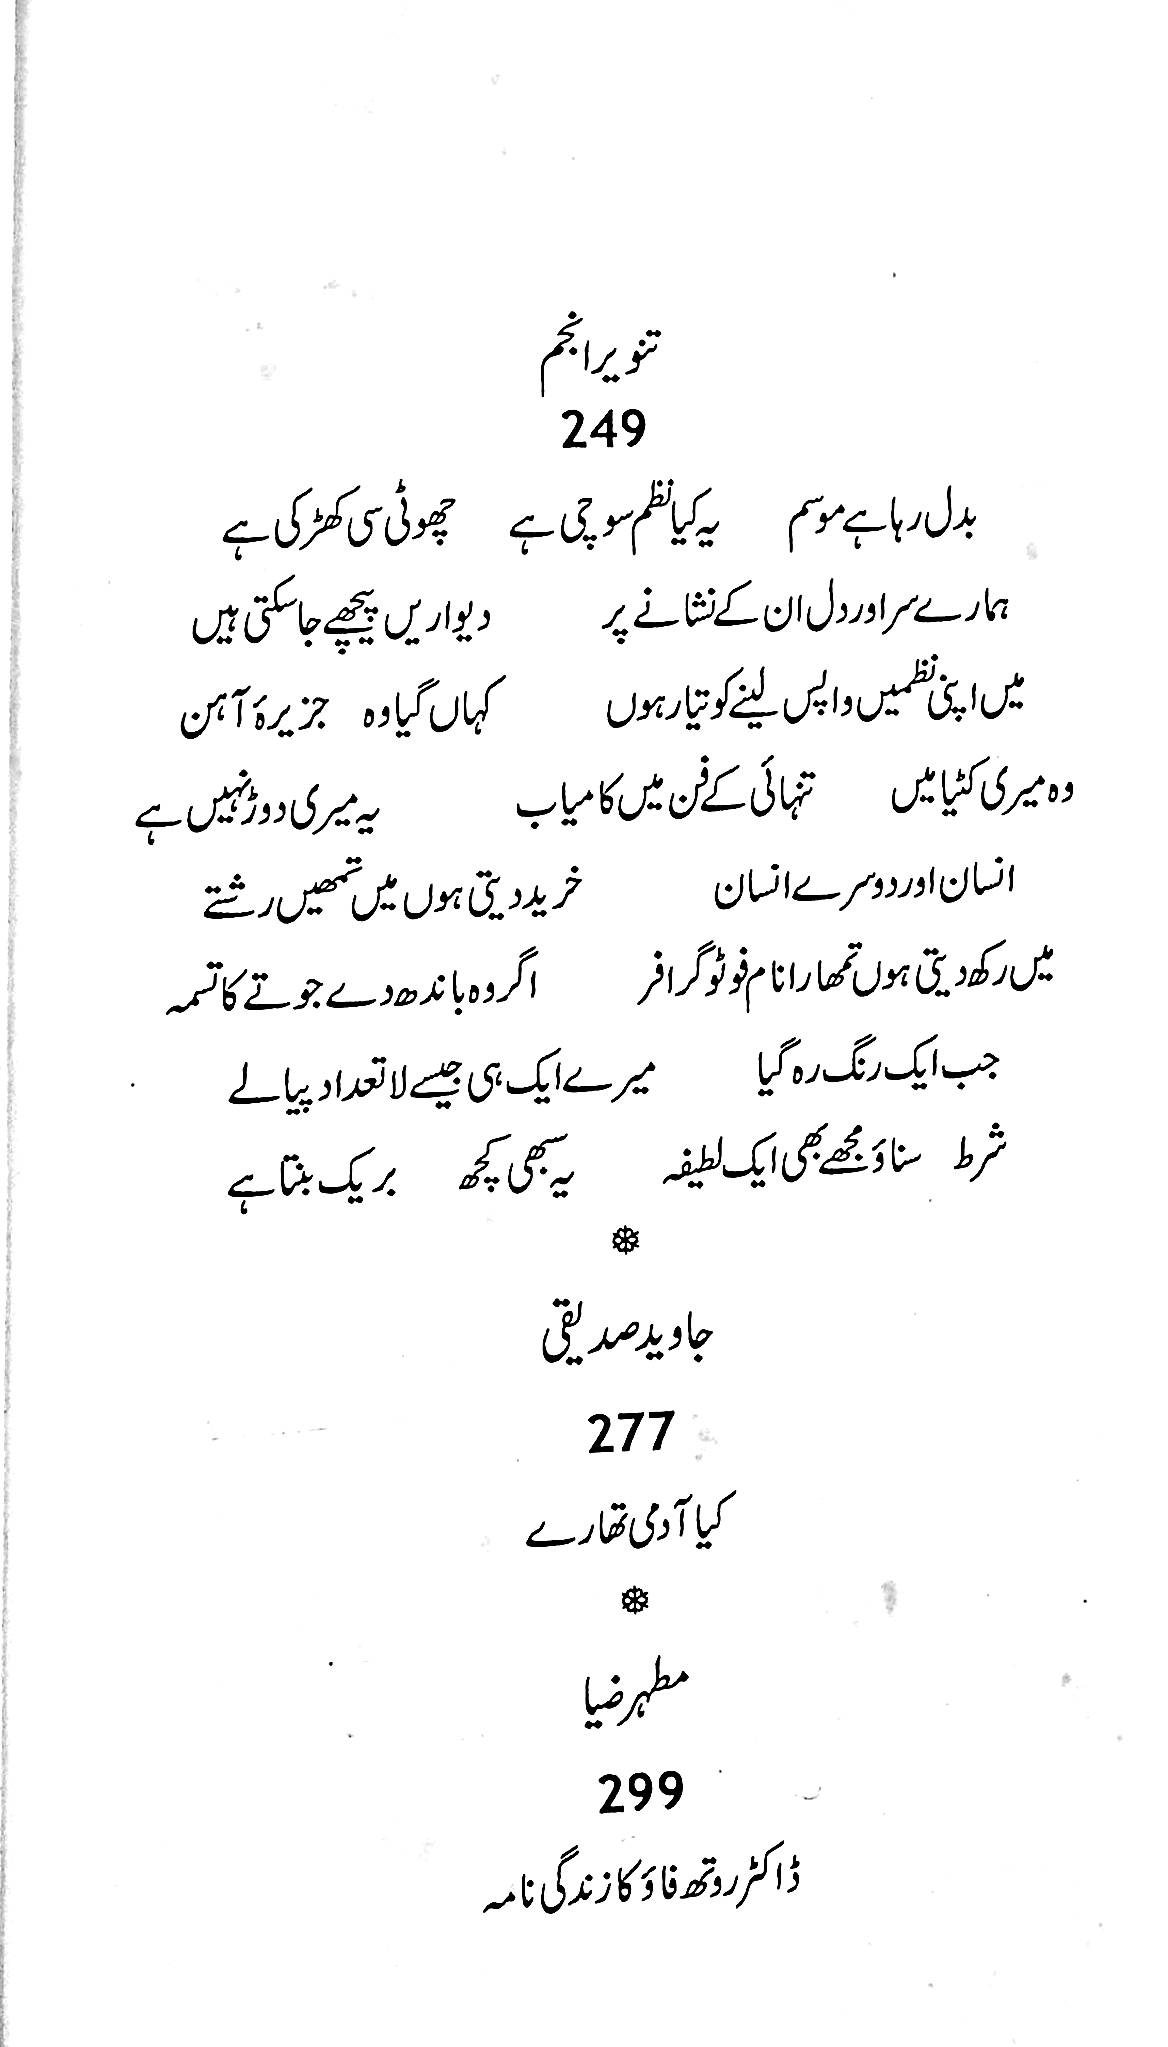 تنویر انجم
249
بدل رہا ہے موسم یہ کیا نظم سوچی ہے چھوٹی سی کھڑکی ہے
ہمارے سر اور دل ان کے نشانے پر دیواریں پیچھے جا سکتی ہیں
میں اپنی نظمیں واپس لینے کو تیار ہوں کہاں گیا وہ جزیرۂ آہن
وہ میری کٹیا میں تنہائی کے فن میں کامیاب یہ میری دوڑ نہیں ہے
انسان اور دوسرے انسان خرید دیتی ہوں میں تمھیں رشتے
میں رکھ دیتی ہوں تمھارا نام فوٹوگرافر اگر وہ باندھ دے جوتے کا تسمہ
جب ایک رنگ رہ گیا میرے ایک ہی جیسے لاتعداد پیالے
شرط سناؤ مجھے بھی ایک لطیفہ یہ سبھی کچھ بریک بنتا ہے
جاوید صدیقی
277
کیا آدمی تھا رے
مطہر ضیا
299
ڈاکٹر روتھ فاؤ کا زندگی نامہ